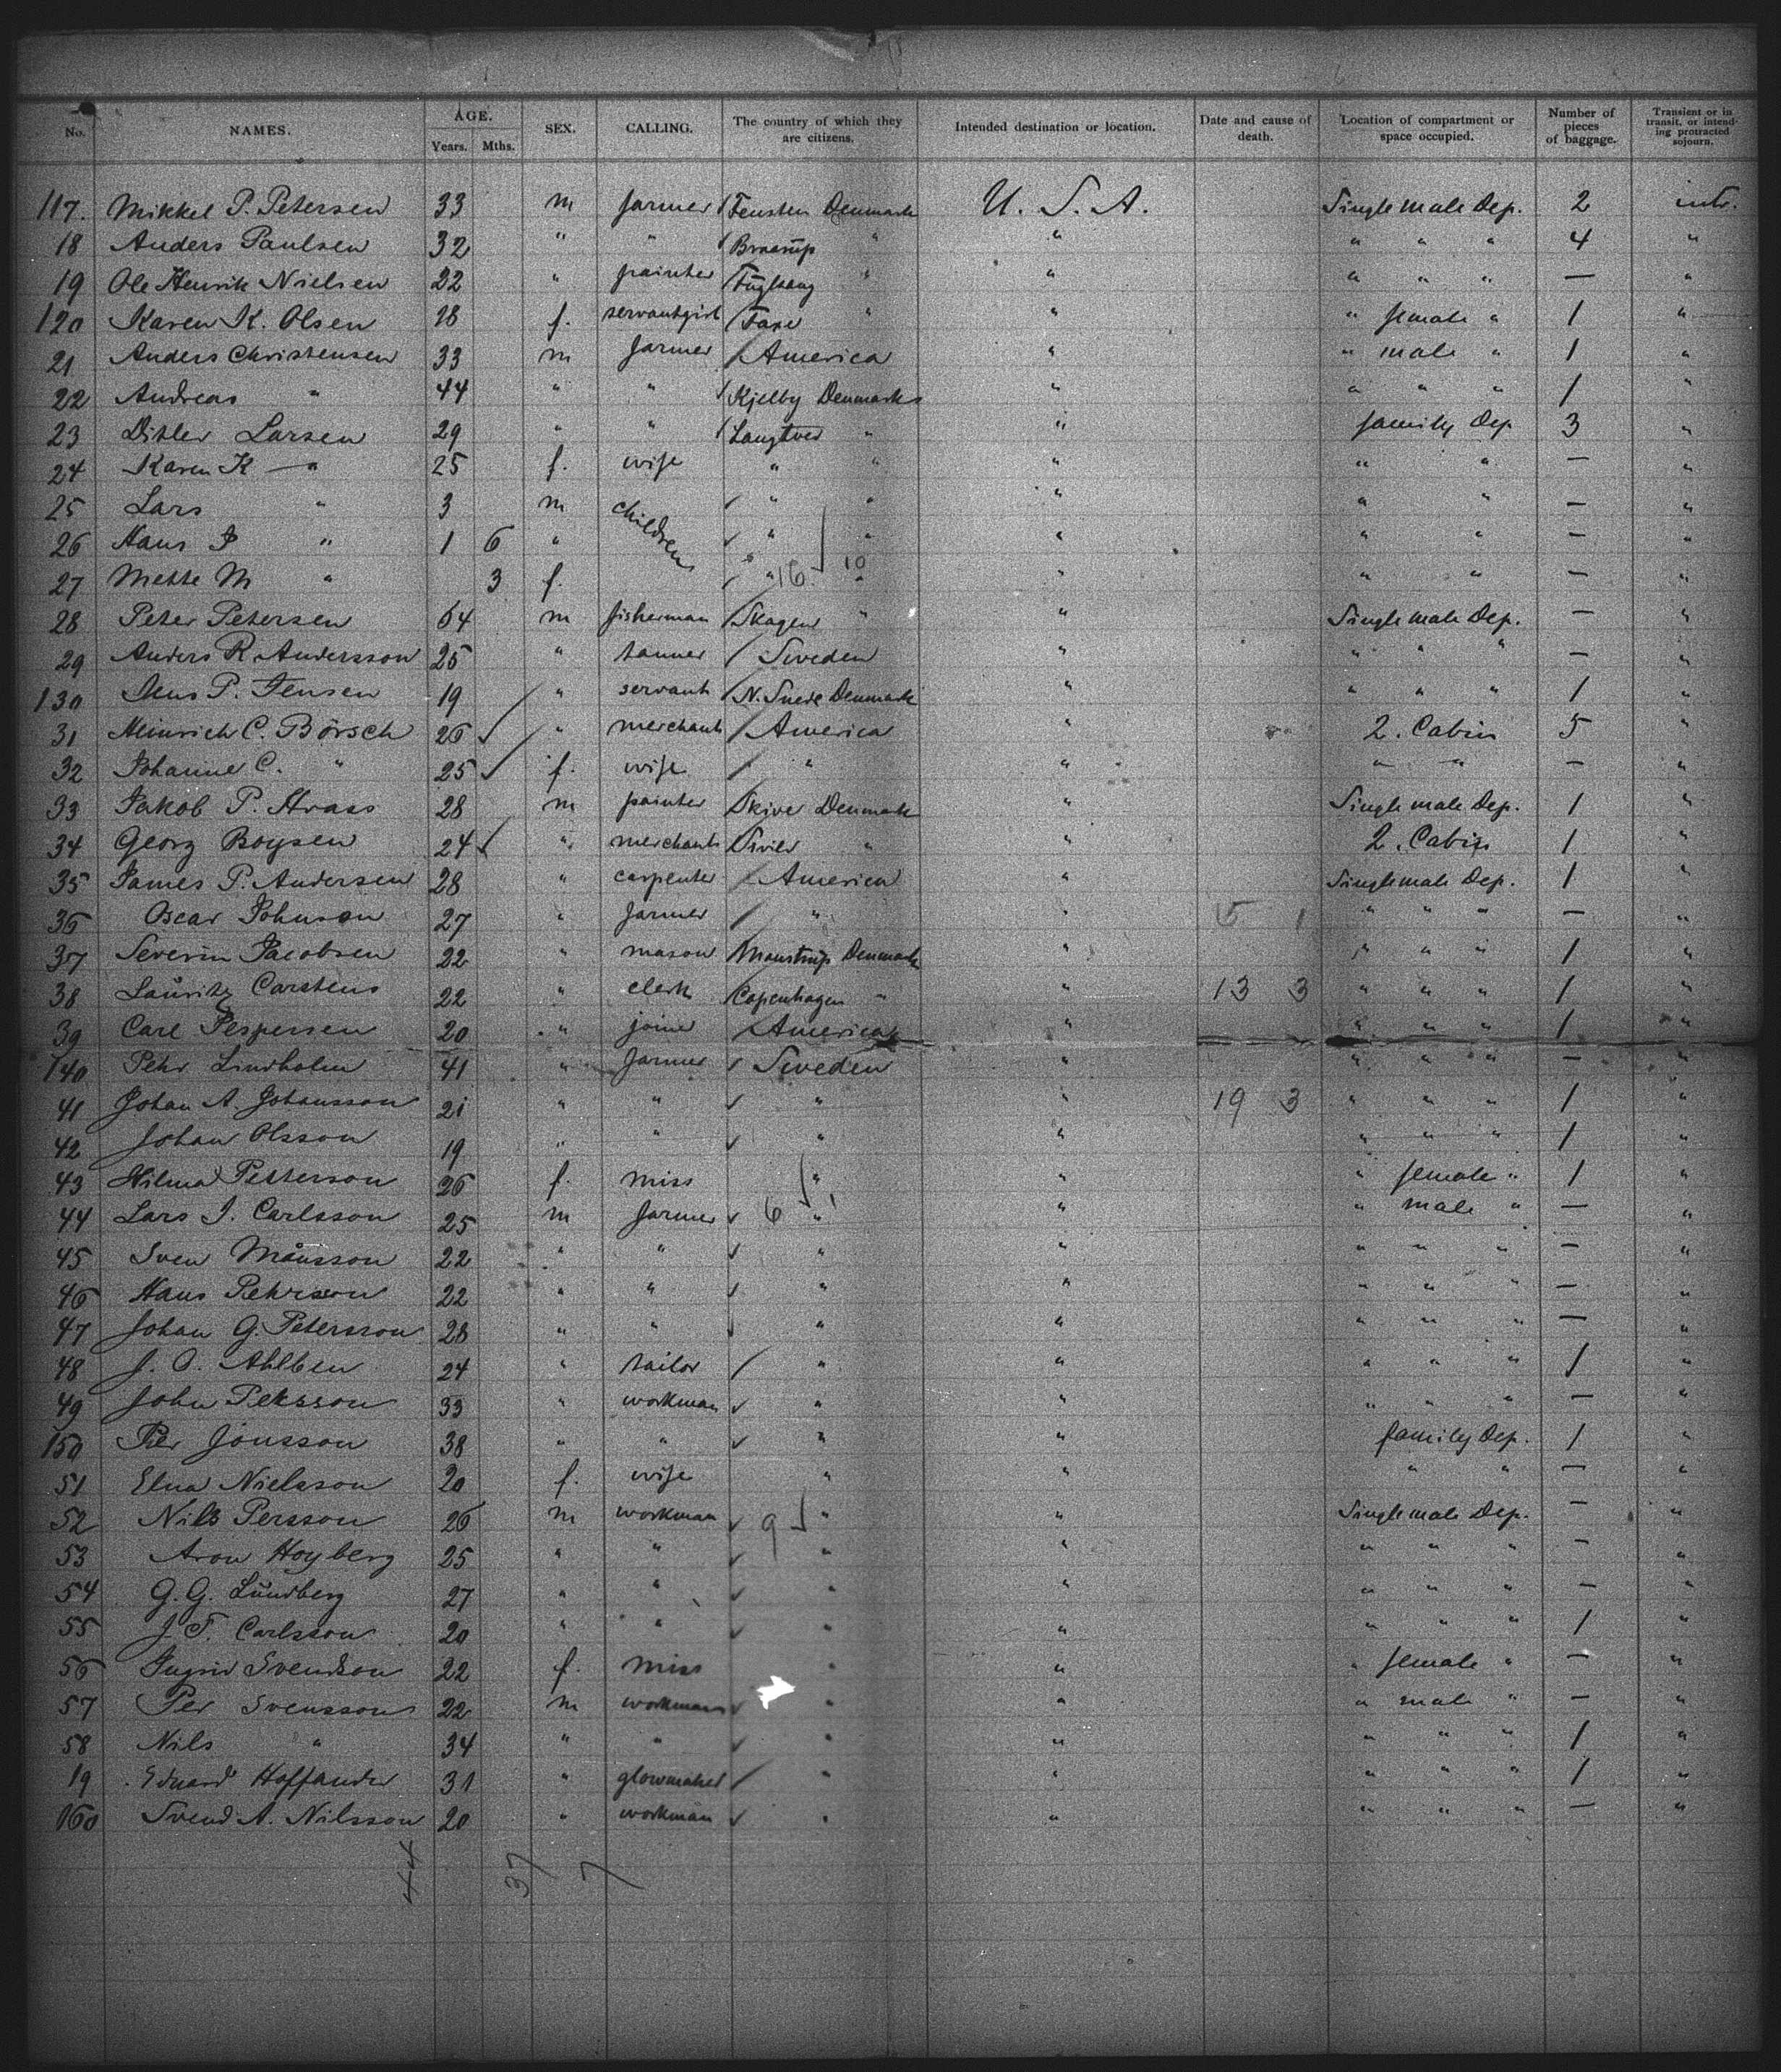 No. NAMES. AGE. Years. Mths. SEX. CALLING. The country of which they are citizens. Intended destination or location. Date and cause of death. Location of compartment or space occupied. Number of pieces of baggage. Transient or in transit, or intending protracted sojourn.
117. Mikkel P. Petersen 33 m farmer Denmark U. S. A. Single male Dep. 2
18 Anders Paulsen 32 " " " " " " " 4 "
19 Ole Henrik Nielsen 22 " painter " " " " " — "
120 Karen K. Olsen 28 f. servantgirl Faxe " " " female " 1 "
21 Anders Christensen 33 m farmer America " " male " 1 "
22 Andreas " 44 " " Kjelby Denmark " " " " 1 "
23 Ditlev Larsen 29 " " " " family Dep 3 "
24 Karen K — " 25 f. wife " " " " " — "
25 Lars " 3 m children " " " " " — "
26 Hans P " 1 6 " " " " " " — "
27 Mette M " 3 f. " 16 10 " " " " — "
28 Peter Petersen 64 m fisherman Skagen " " Single male Dep. — "
29 Anders R. Andersson 25 " tanner Sweden " " " " — "
130 Jens P. Jensen 19 " servant N. Snede Denmark " " " " 1 "
31 Heinrich C. Börsch 26 " merchant America " 2. Cabin 5 "
32 Johanne C. " 25 f. wife " " " " — "
33 Jakob P. Strass 28 m painter Skive Denmark " Single male Dep. 1 "
34 Georg Boysen 24 " merchant " " 2. Cabin 1 "
35 James P. Andersen 28 " carpenter America " Single male Dep. 1 "
36 Oscar Johnson 27 " farmer " " 15 1 " " " — "
37 Severin Jacobsen 22 " mason Denmark " " " " 1 "
38 Lauritz Carstens 22 " clerk Copenhagen " " 13 3 " " " 1 "
39 Carl Jespersen 20 " joiner America " " " " 1 "
140 Pehr Lindholm 41 " farmer Sweden " " " " — "
41 Johan A. Johansson 21 " " " " 19 3 " " " 1 "
42 Johan Olsson 19 " " " " " " " 1 "
43 Hilma Petterson 26 f. miss " " " female " 1 "
44 Lars J. Carlsson 25 m farmer 6 " " " male " — "
45 Sven Månsson 22 " " " " " " " — "
46 Hans Pehrsson 22 " " " " " " " — "
47 Johan G. Petersson 28 " " " " " " " — "
48 24 " tailor " " " " " 1 "
49 John Persson 33 " workman " " " " " — "
150 Per Jönsson 38 " " " " family Dep. 1 "
51 Elna Nielsson 20 f. wife " " " " — "
52 Nils Persson 26 m workman 9 " " Single male Dep. — "
53 Aron Hoyberg 25 " " " " " " " — "
54 G. G. Lundberg 27 " " " " " " " — "
55 J. F. Carlsson 20 " " " " " " " 1 "
56 Ingrid Svendson 22 f. miss " " " female " — "
57 Per Svensson 22 m workman " " " male " — "
58 Nils " 34 " " " " " " " 1 "
19 Eduard Hoffander 31 " glowmaker " " " " " 1 "
160 Svend A. Nilsson 20 " workman " " " " " — "
44 37 7